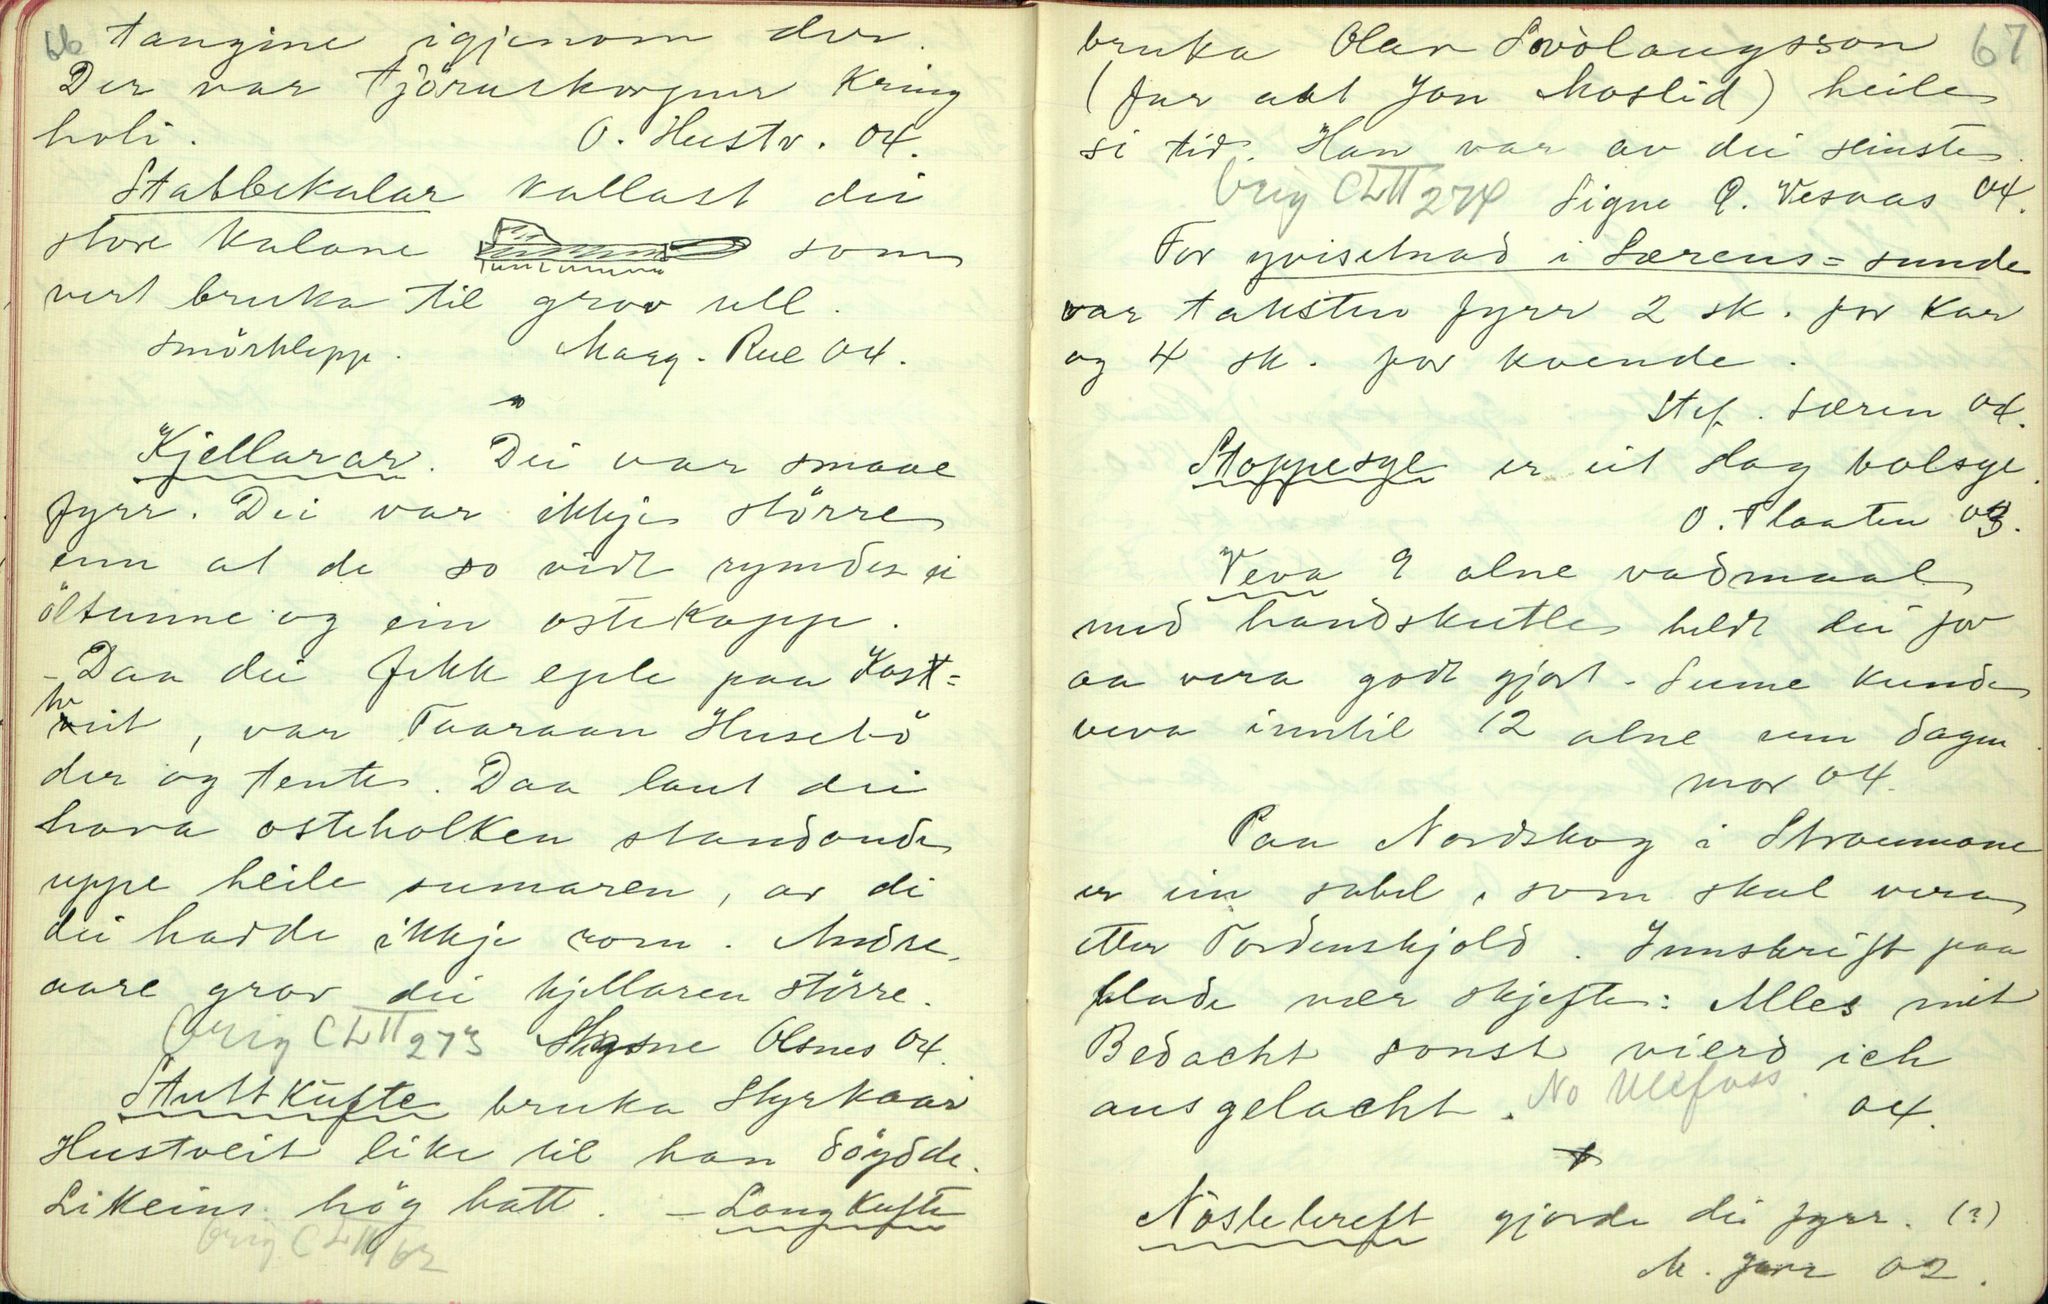 66
tangine igjenom der.
Der var tjöruskorpur kring
holi. O. Hustv. 04.
Stabbekalar kallast dei
store kalane som
vert bruka til grov ull.
smörklepp. Marg. Rue 04.
Kjellarar. Dei var smaae
fyrr. Dei var ikkje större
enn at de so vidt rymdes ei
öltunne og ein ostekopp.
- Daa dei fekk eple paa Kost=
tveit, var Taaraan Husebö
der og tente. Daa laut dei
hava osteholken standande
uppe heile sumaren, av di
dei hadde ikkje rom. Andre
aare grov dei kjellaren större.
Orig CLII 273 Signe Olsnes 04.
Stuttkufte bruka Styrkaar
Hustveit like til han döydde.
Likeins hög hatt. - Langkufte
Orig. CLIII 62
67
bruka Olav Svòlaugsson
(far aat Jon Moslid) heile
si tid. Han var av dei seinste.
Orig CLII 274 Signe O. Vesaas 04.
For yvisetnad i Særens=sunde
var taksten fyrr 2 sk. for kar
og 4 sk. for kvende.
Stef. Særen 04.
Stoppesye er eit slag bolsye.
O. Plaaten 03.
Veva 9 alne vadmaal
med handskutle heldt dei for
aa vera godt gjort. Sume kunde
veva inntil 12 alne um dagen.
mor 04.
Paa Nordskog i Straumane
er ein sabel, som skal vera
etter Tordenskjold. Innskrift paa
blade nær skjefte: Alles mit
Bedacht sonst vierd ich
ausgelacht. No Ulefoss. 04.
Nöstebreft gjorde dei fyrr. (?)
M. 02.